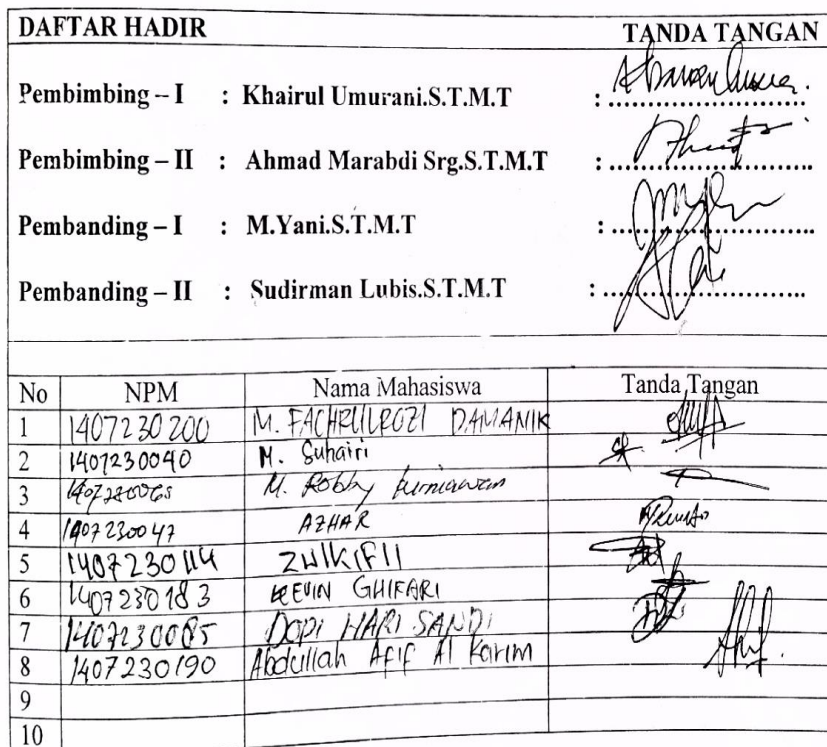 DAFTAR HADIR TANDA TANGAN
Pembimbing – I : Khairul Umurani.S.T.M.T : ........................
Pembimbing – II : Ahmad Marabdi Srg.S.T.M.T : ........................
Pembanding – I : M.Yani.S.T.M.T : ........................
Pembanding – II : Sudirman Lubis.S.T.M.T : ........................
No NPM Nama Mahasiswa Tanda Tangan
1 1407230200 M. FACHRULROZI DAMANIK
2 1407230040 M. Suhairi
3 M. Robby kurniawan
4 1407230047 AZHAR
5 1407230114 ZULKIFLI
6 1407230183 KEVIN GHIFARI
7 1407230085 DOPI HARI SANDI
8 1407230190 Abdullah Afif Al Karim
9
10